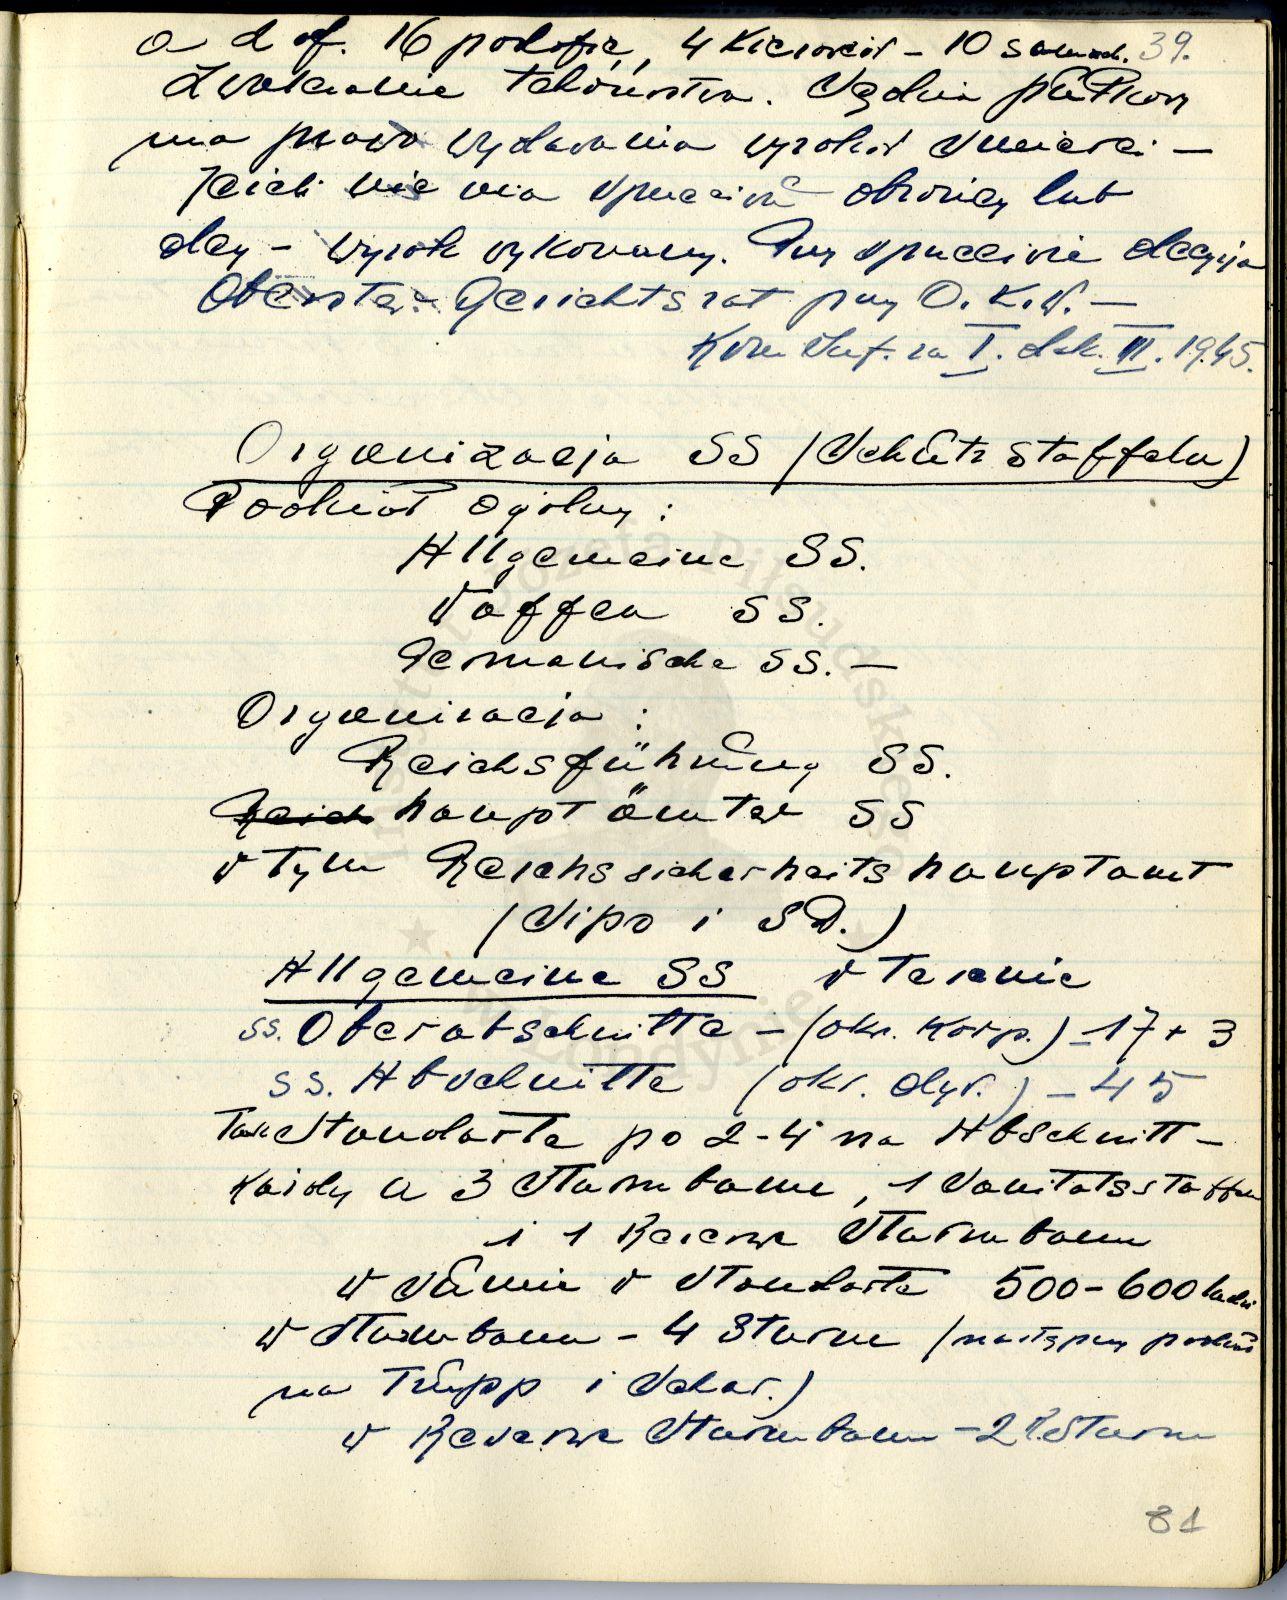 a 2 of. 16 podofic., 4 kierowców – 10 samoch. 39.
Zwalczanie tchórzostwa. Sędzia pułkowy
ma prawo wydawania wyroków śmierci –
Jeżeli nie ma sprzeciwu obrońcy lub
dcy – wyrok wykonany. Przy sprzeciwie decyzja
Oberster-Gerichtsrat przy O.K.W. –
Kom Inf. za I. dek. III. 1945.
Organizacja SS (Schutzstaffeln)
Podział ogólny:
Allgemeine SS.
Waffen SS.
Germanische SS. –
Organizacja:
Reichsführung SS.
Reich hauptämter SS
w tym Reichssicherheitshauptamt
(Sipo i SD.)
Allgemeine SS w terenie
SS. Oberabschnitte – (okr. Korp.) – 17 + 3
SS. Abschnitte (okr. dyw.) – 45
Standarte po 2-4 na Abschnitt –
każdy a 3 Sturmbann, 1 Sanitätsstaffel
i 1 Reserve Sturmbann
W sumie w Standarte 500-600 ludzi
W Sturmbann – 4 Sturm (następny podział
na Trupp i Schar.)
W Reserve Sturmbann – 2 R. Sturm
81
Instytut Józefa Piłsudskiego w Londynie